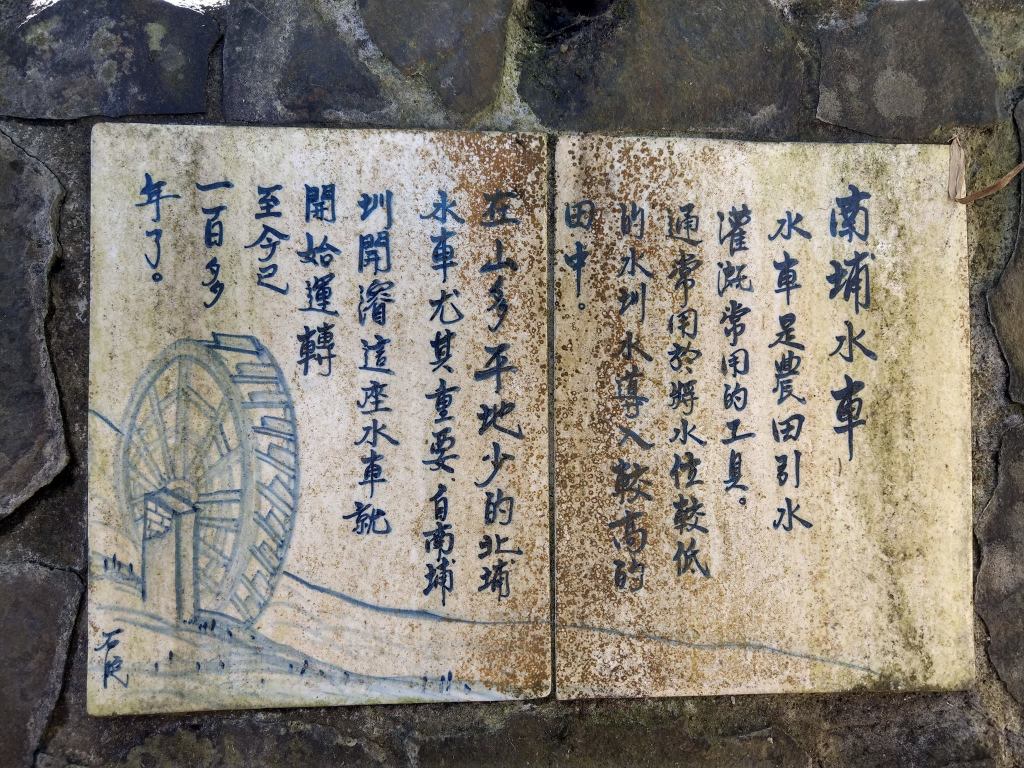 南埔水車
水車是農田引水
灌溉常用的工具。
通常用於將水位較低
的水圳水導入較高的
田中。
在山多平地少的北埔
水車尤其重要，自南埔
圳開濬這座水車就
開始運轉
至今已
一百多
年了。